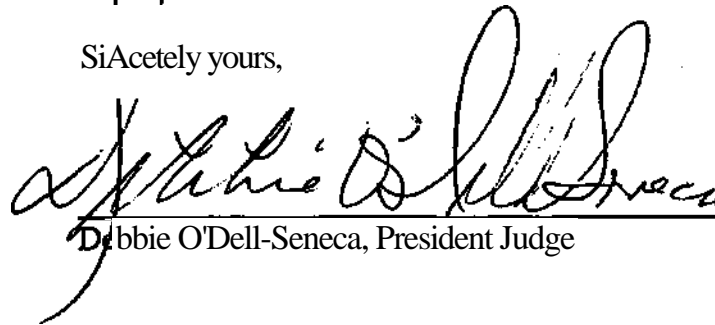 SiAcetely yours,
Debbie O'Dell Seneca
Debbie O'Dell-Seneca, President Judge